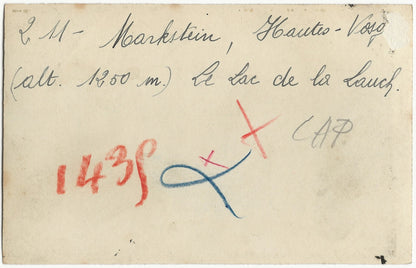 2 11 - Markstein, Hautes-Vosg
(alt. 1200 m.) Le Lac de la Lauch.
CAP
1439